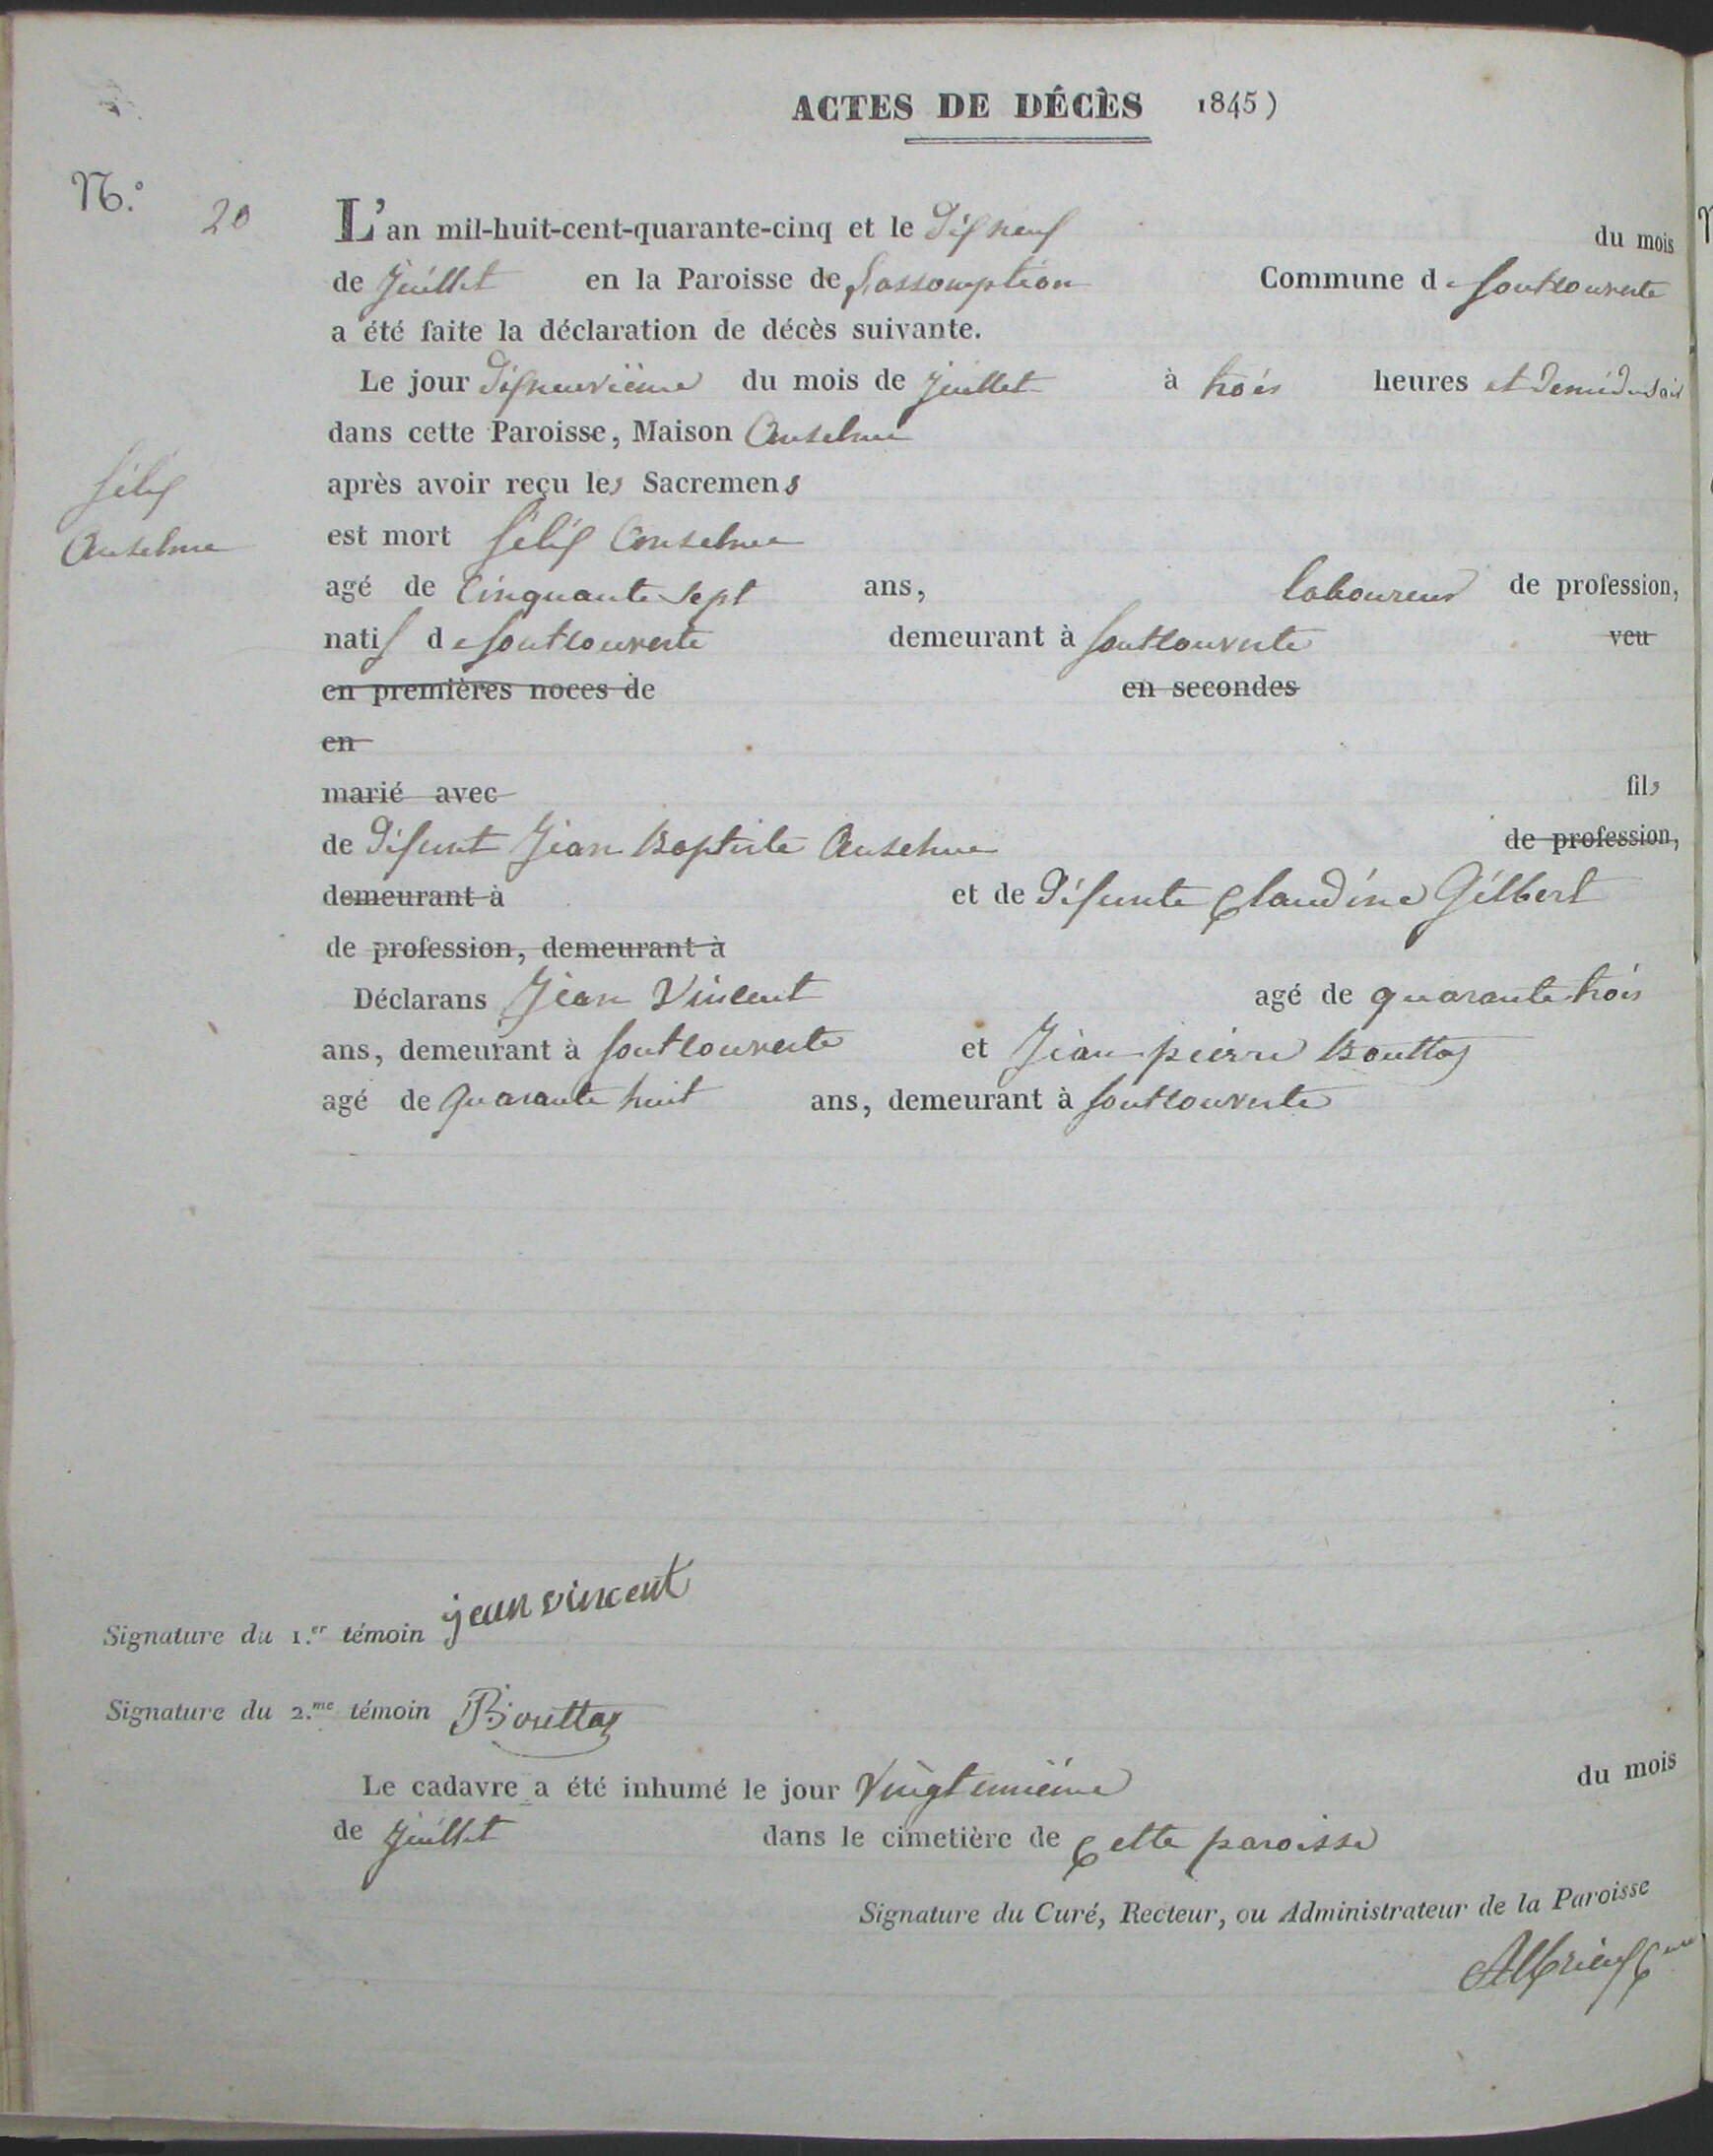 ACTES DE DÉCÈS 1845)
N.° 20
L'an mil-huit-cent-quarante-cinq et le dix neuf du mois
de Juillet en la Paroisse de Lassomption Commune de foutcouverte
a été faite la déclaration de décès suivante.
Le jour dixneuvième du mois de juillet à trois heures et demi du soir
dans cette Paroisse, Maison Anselme
après avoir reçu les Sacremens
félix
Anselme
est mort félix Anselme
agé de Cinquante sept ans, laboureur de profession,
natif de foutcouverte demeurant à foutcouverte veu
en premières noces de en secondes
en
marié avec fils
de défunt Jean Baptiste Anselme de profession,
demeurant à et de défunte Claudine Gilbert
de profession, demeurant à
Déclarans Jean Vincent agé de quarante trois
ans, demeurant à foutcouverte et Jean pierre Bouttaz
agé de Quarante huit ans, demeurant à foutcouverte
Signature du 1.er témoin jean vincent
Signature du 2.me témoin Bouttaz
Le cadavre a été inhumé le jour Vingt unième du mois
de Juillet dans le cimetière de Cette paroisse
Signature du Curé, Recteur, ou Administrateur de la Paroisse